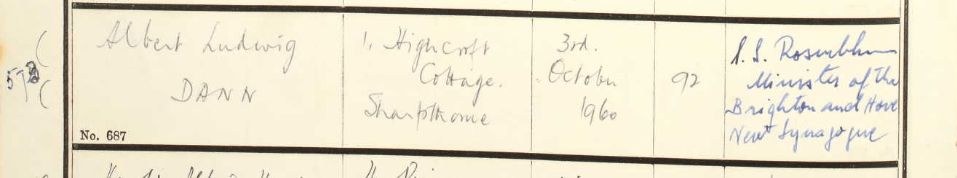 Albert Ludwig
DANN
No. 687
1, Highcroft
Cottage.
Sharpthorne
3rd.
October
1960
92
Minister of the
Brighton and Hove
New Synagogue